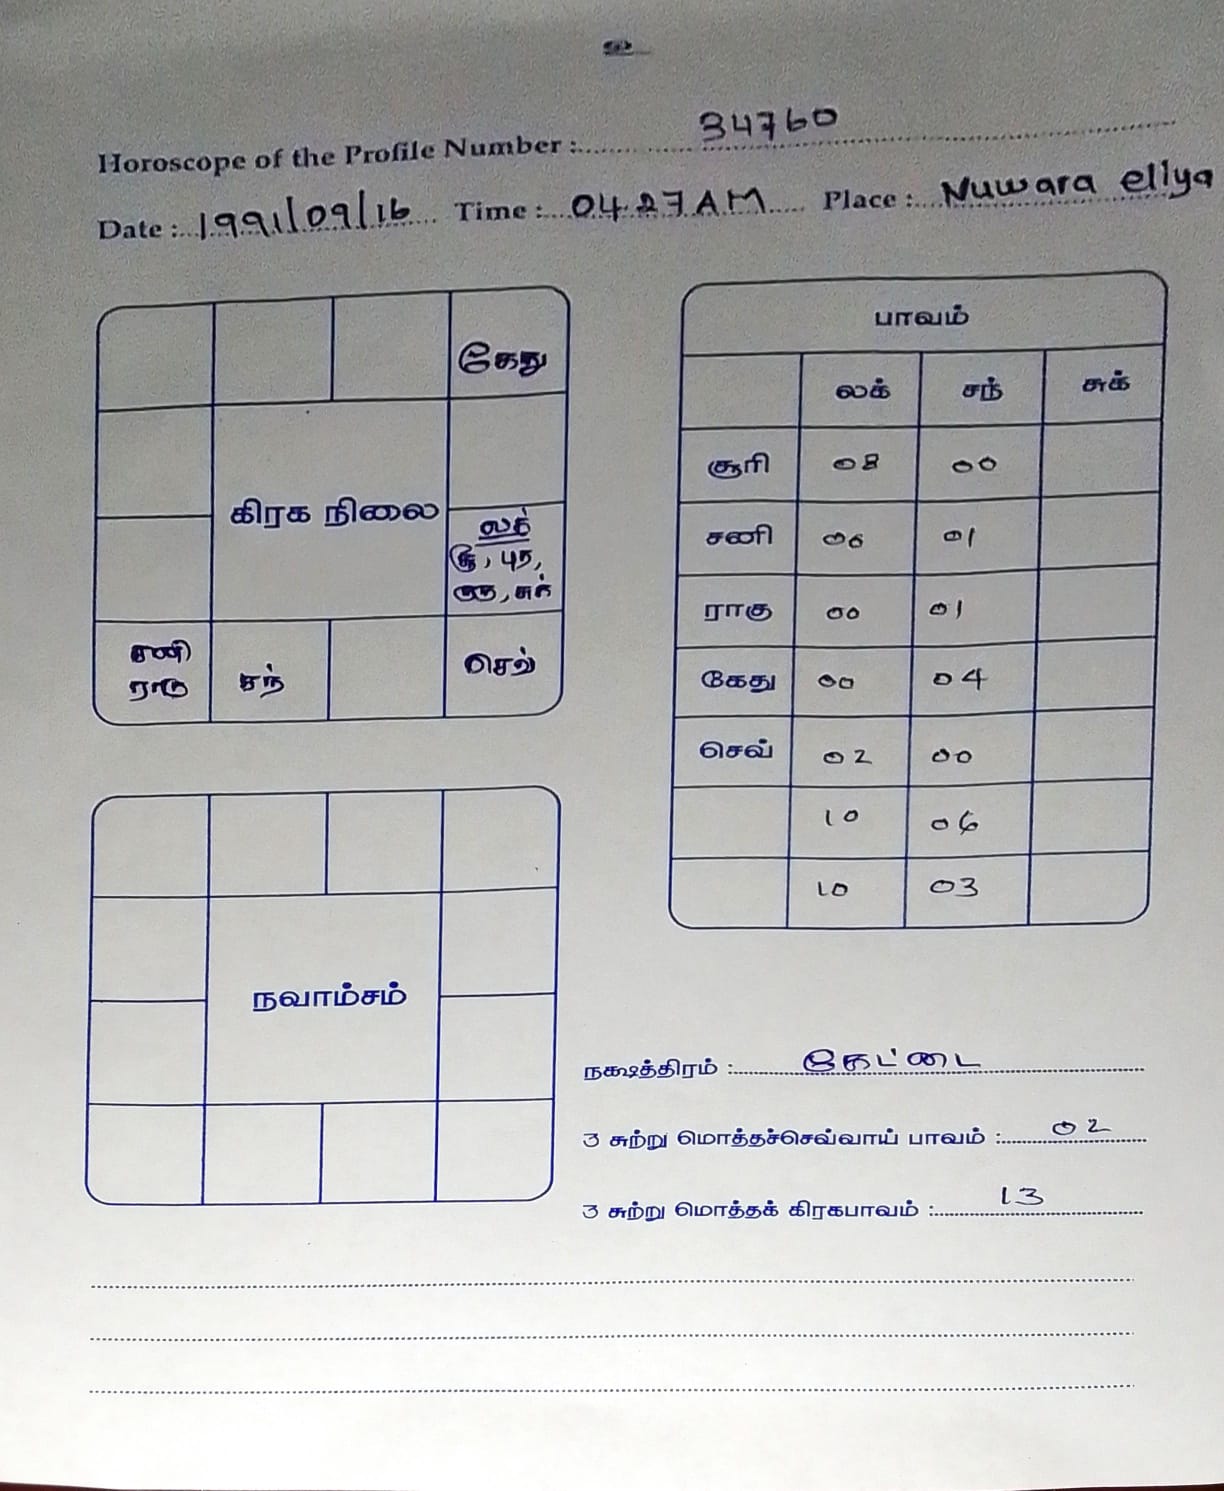 Horoscope of the Profile Number : 34760
Date : 1991/09/16 Time : 04 27 AM Place : Nuwara eliya
கேது
கிரக நிலை
லக்
சூ, புத,
குரு, சுக்
சனி
ராகு
சந்
செவ்
பாவம்
லக் சந் சுக்
சூரி 08 00
சனி 06 01
ராகு 00 01
கேது 00 04
செவ் 02 00
10 06
10 03
நவாம்சம்
நக்ஷத்திரம் : கேட்டை
3 சுற்று மொத்தச்செவ்வாய் பாவம் : 02
3 சுற்று மொத்தக் கிரகபாவம் : 13